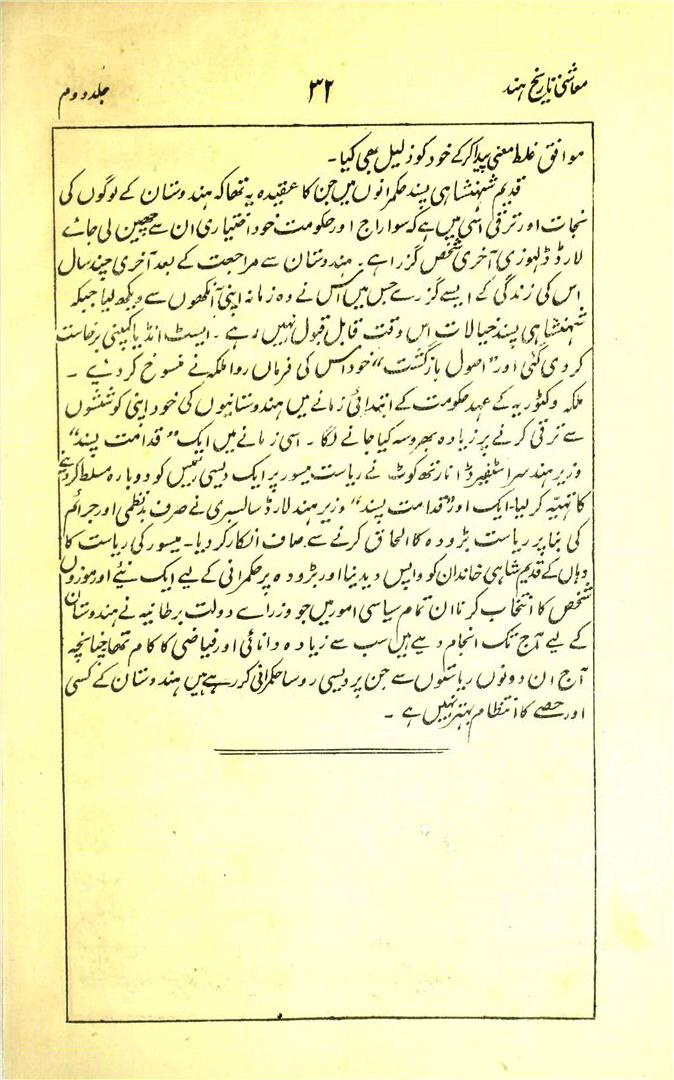 معاشی تاریخ ہند ۳۲ جلد دوم
موافق غلط معنی پیدا کر کے خود کو ذلیل بھی کیا۔
قدیم شہنشاہی پسند حکمرانوں میں جن کا عقیدہ یہ تھا کہ ہندوستان کے لوگوں کی
نجات اور ترقی اسی میں ہے کہ سوراج اور حکومت خود اختیاری ان سے چھین لی جائے
لارڈ ڈلہوزی آخری شخص گزرا ہے۔ ہندوستان سے مراجعت کے بعد آخری چند سال
اس کی زندگی کے ایسے گزرے جس میں اس نے وہ زمانہ اپنی آنکھوں سے دیکھ لیا جبکہ
شہنشاہی پسند خیالات اس وقت قابل قبول نہیں رہے۔ ایسٹ انڈیا کمپنی برخاست
کر دی گئی اور "اصول بازگشت" خود اس کی فرماں روا ملکہ نے منسوخ کر دیے۔
ملکہ وکٹوریہ کے عہد حکومت کے ابتدائی زمانے میں ہندوستانیوں کی خود اپنی کوششوں
سے ترقی کرنے پر زیادہ بھروسہ کیا جانے لگا۔ اسی زمانے میں ایک "قدامت پسند"
وزیر ہند سر اسٹیفرڈ نارتھ کوٹ نے ریاست میسور پر ایک دیسی رئیس کو دوبارہ مسلط کر دینے
کا تہیّہ کر لیا۔ ایک اور "قدامت پسند" وزیر ہند لارڈ سالسبری نے صرف بدنظمی اور جرائم
کی بنا پر ریاست بڑودہ کا الحاق کرنے سے صاف انکار کر دیا۔ میسور کی ریاست کا
وہاں کے قدیم شاہی خاندان کو واپس دیدینا اور بڑودہ پر حکمرانی کے لیے ایک نئے اور موزوں
شخص کا انتخاب کرنا ان تمام سیاسی امور میں جو وزرائے دولت برطانیہ نے ہندوستان
کے لیے آج تک انجام دیے ہیں سب سے زیادہ دانائی اور فیاضی کا کام تھا چنانچہ
آج ان دونوں ریاستوں سے جن پر دیسی روسا حکمرانی کر رہے ہیں ہندوستان کے کسی
اور حصے کا انتظام بہتر نہیں ہے۔